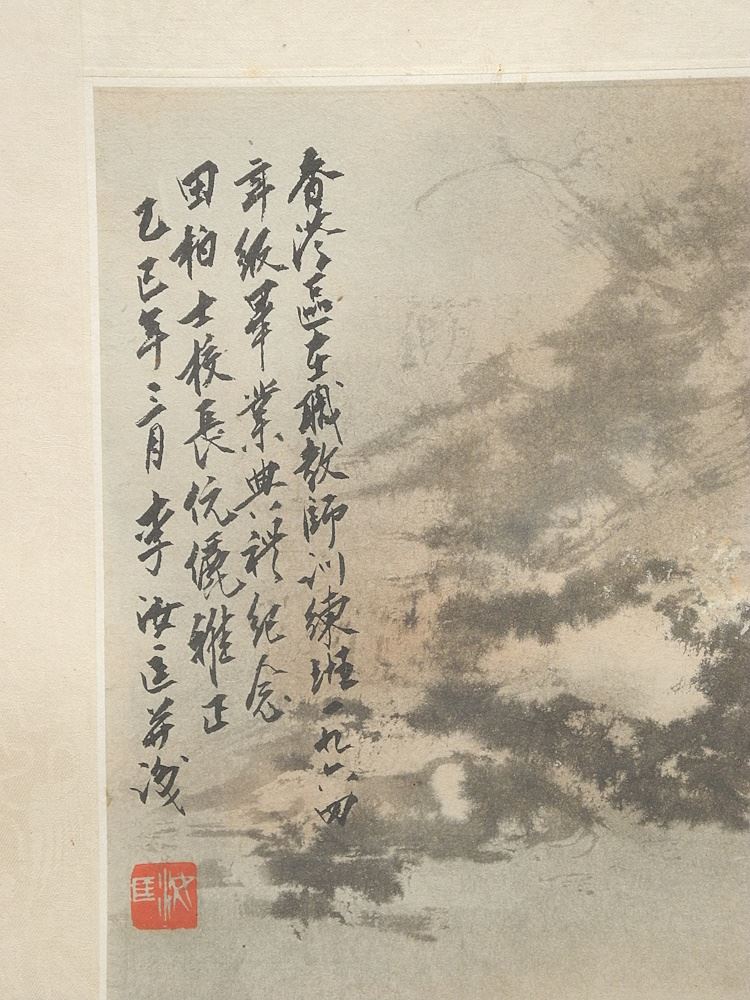 香港區在職教師訓練班一九六四
年級畢業典禮紀念
田柏士校長伉儷雅正
乙巳年三月李汝匡并識
汝匡